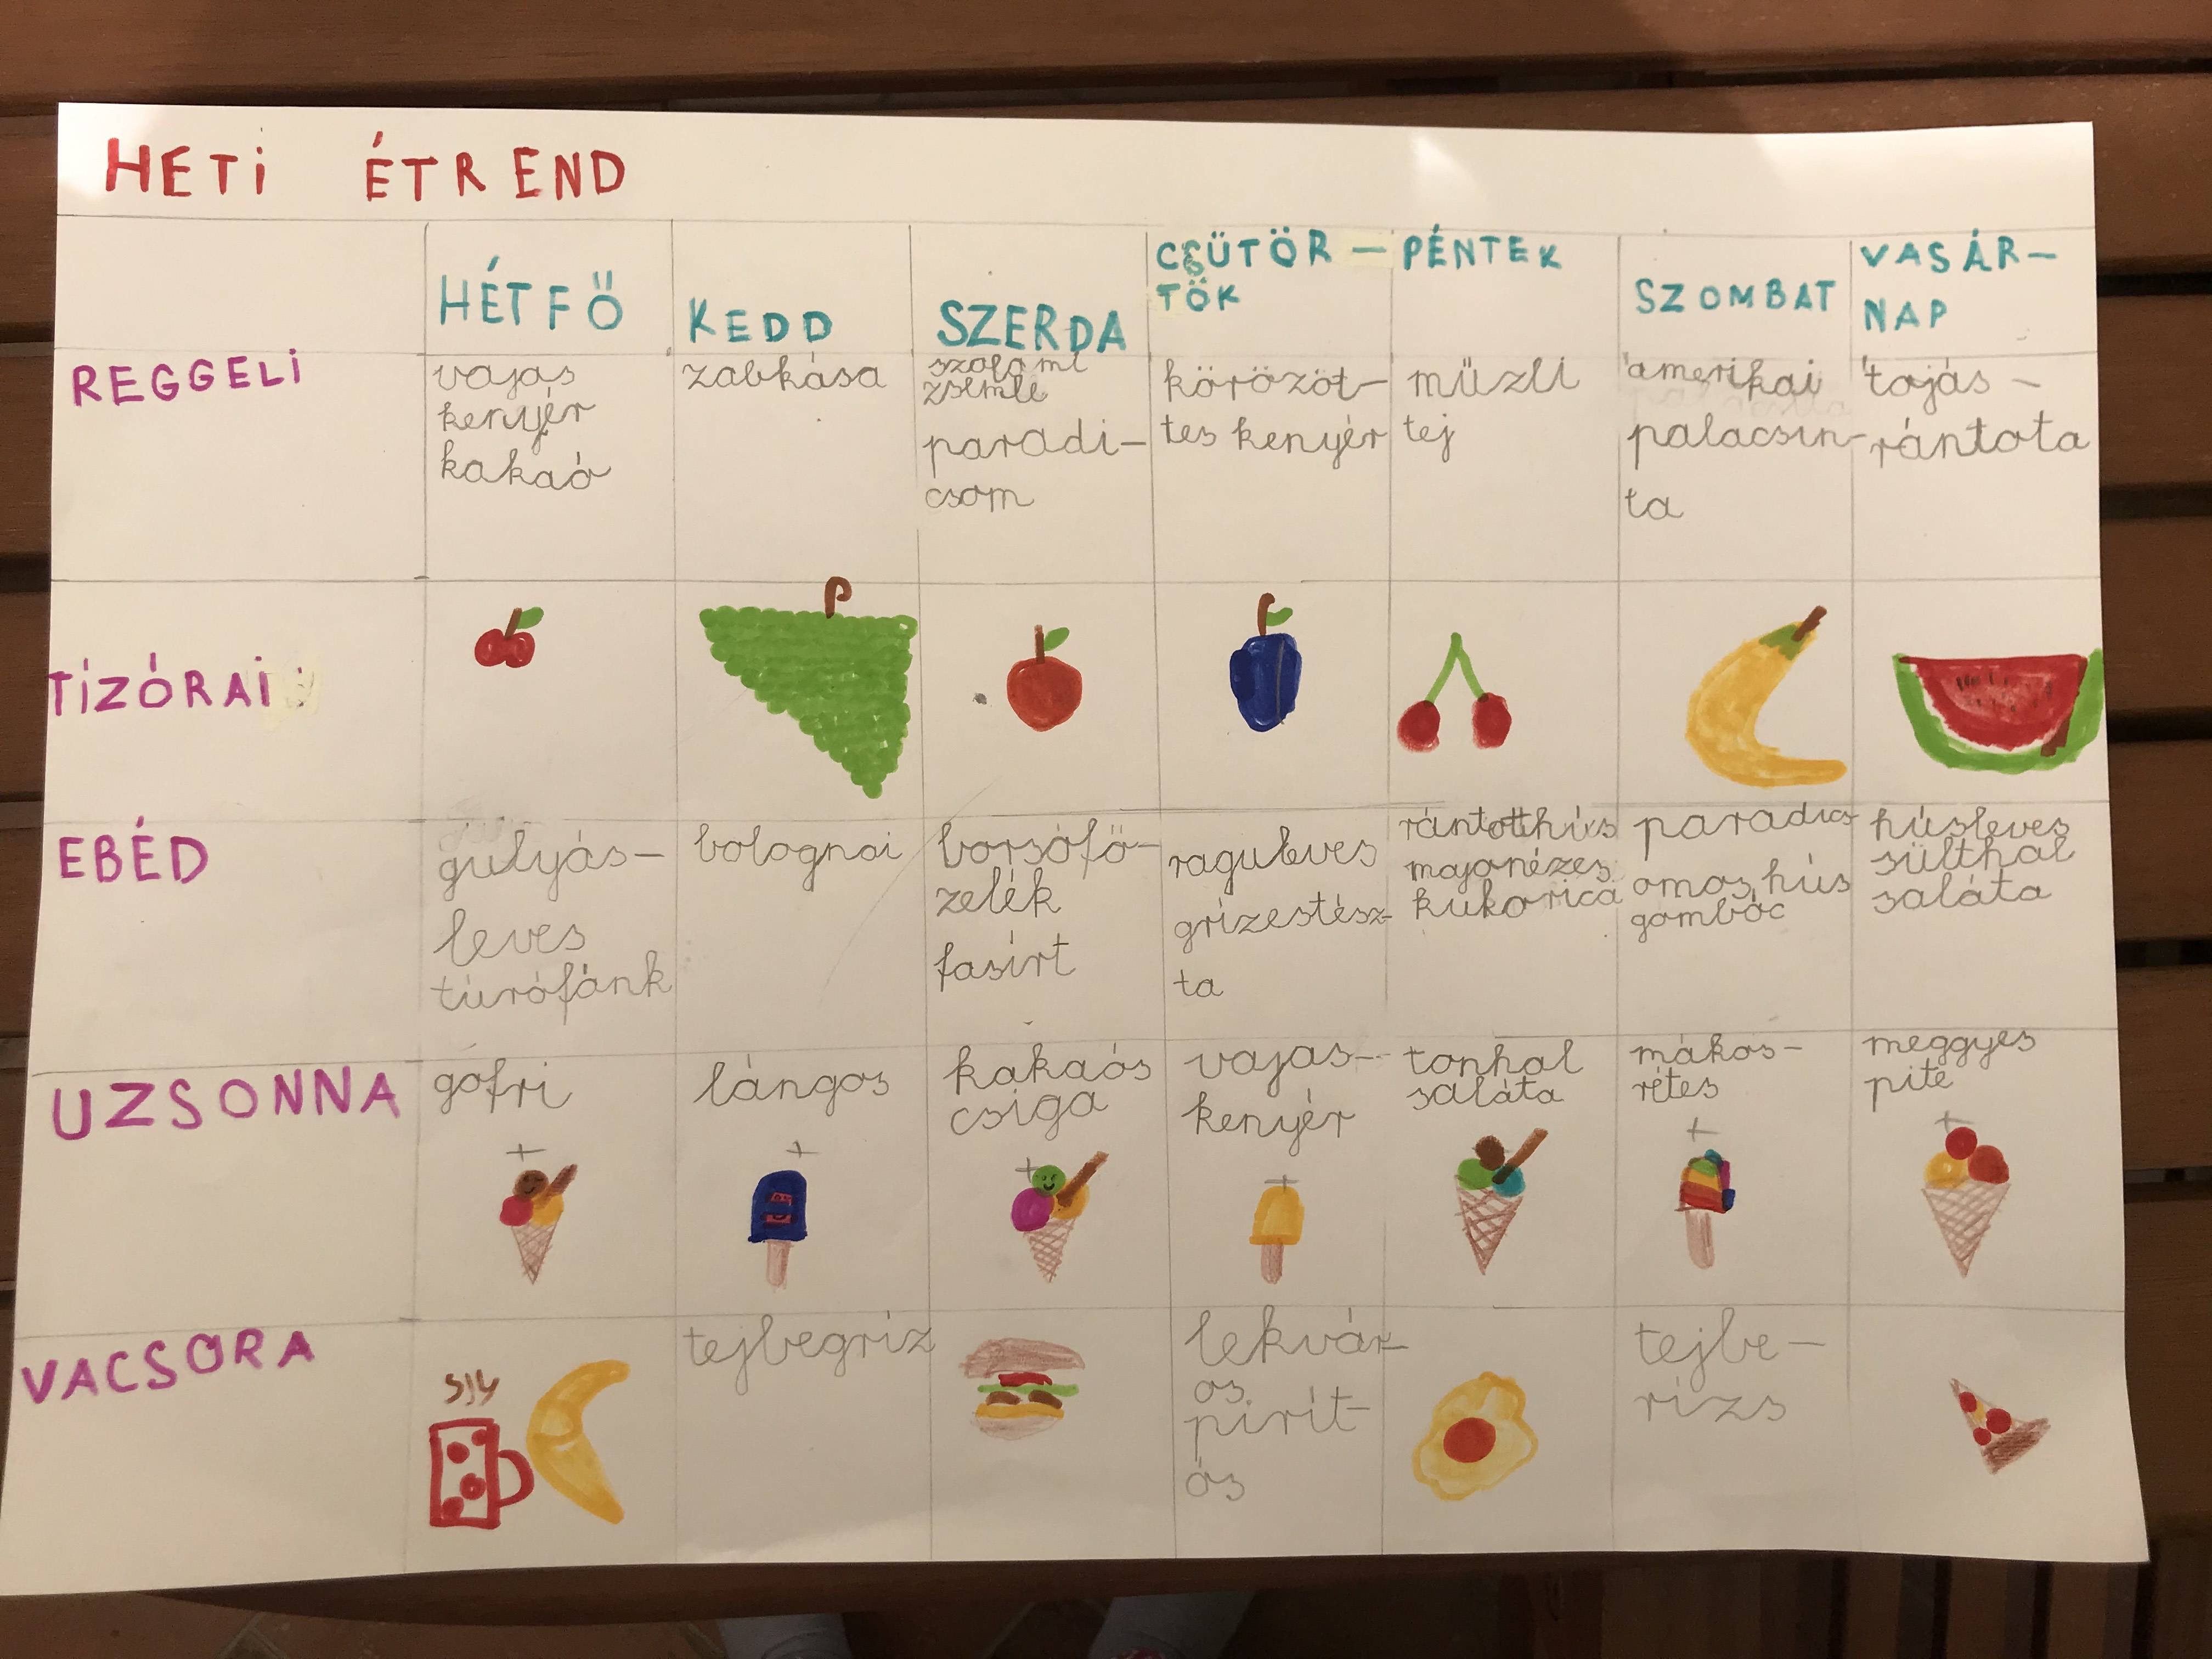 HETi ÉTREND
HÉTFŐ
KEDD
SZERDA
CSÜTÖR-
TÖK
PÉNTEK
SZOMBAT
VASÁR-
NAP
REGGELi
vajas
kenyér
kakaó
zabkása
szalámi
zsemle
paradi-
csom
körözöt-
tes kenyér
müzli
tej
amerikai
palacsin-
ta
tojás-
rántota
TÍZÓRAi
EBÉD
gulyás-
leves
túrófánk
bolognai
borsófő-
zelék
fasírt
raguleves
grízestész-
ta
rántotthús
majonézes
kukorica
paradics
omos hús
gombóc
húsleves
sülthal
saláta
UZSONNA
gofri
+
lángos
+
kakaós
csiga
+
vajas-
kenyér
+
tonhal
saláta
mákos-
rétes
+
meggyes
pite
+
VACSORA
tejbegríz
lekvár-
os
pirít-
ós
tejbe-
rizs